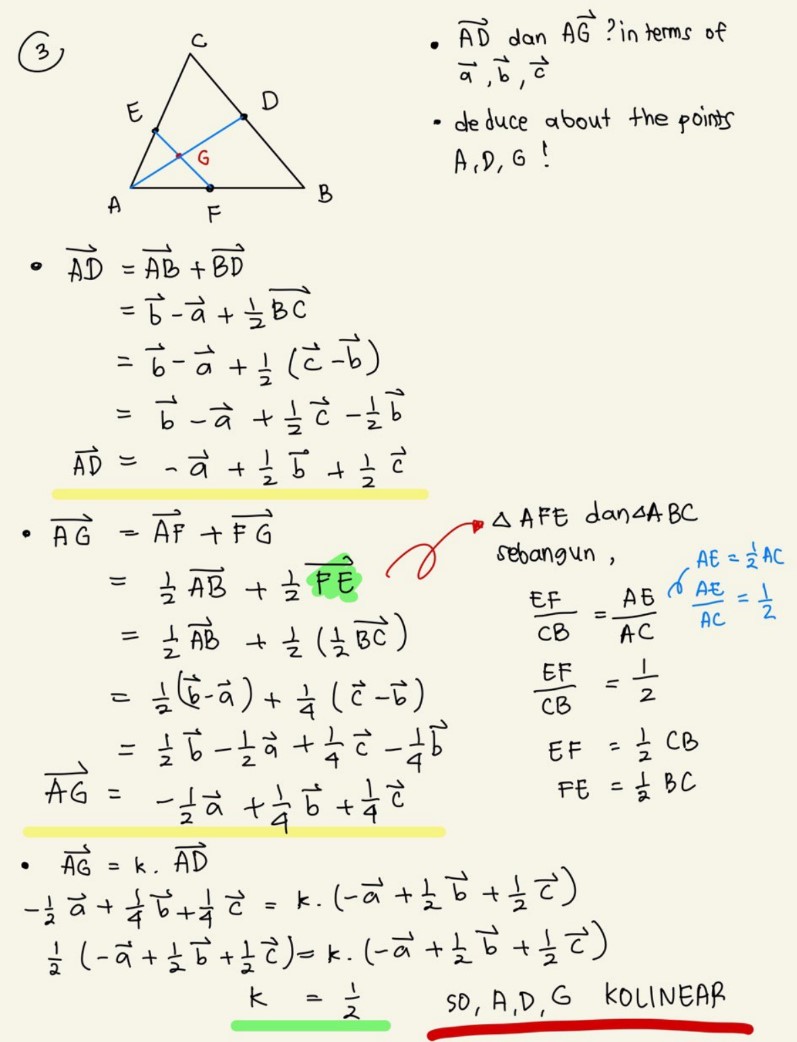 3
C
E
D
G
A
F
B
• AD→ dan AG→ ? in terms of
a→, b→, c→
• deduce about the points
A, D, G !
• AD→ = AB→ + BD→
= b→ - a→ + 1/2 BC→
= b→ - a→ + 1/2 (c→ - b→)
= b→ - a→ + 1/2 c→ - 1/2 b→
AD→ = - a→ + 1/2 b→ + 1/2 c→
• AG→ = AF→ + FG→
= 1/2 AB→ + 1/2 FE→
= 1/2 AB→ + 1/2 (1/2 BC→)
= 1/2 (b→ - a→) + 1/4 (c→ - b→)
= 1/2 b→ - 1/2 a→ + 1/4 c→ - 1/4 b→
AG→ = - 1/2 a→ + 1/4 b→ + 1/4 c→
△ AFE dan △ ABC
sebangun ,
EF/CB = AE/AC
AE = 1/2 AC
AE/AC = 1/2
EF/CB = 1/2
EF = 1/2 CB
FE = 1/2 BC
• AG→ = k . AD→
- 1/2 a→ + 1/4 b→ + 1/4 c→ = k . (- a→ + 1/2 b→ + 1/2 c→)
1/2 (- a→ + 1/2 b→ + 1/2 c→) = k . (- a→ + 1/2 b→ + 1/2 c→)
k = 1/2
SO, A, D, G KOLINEAR